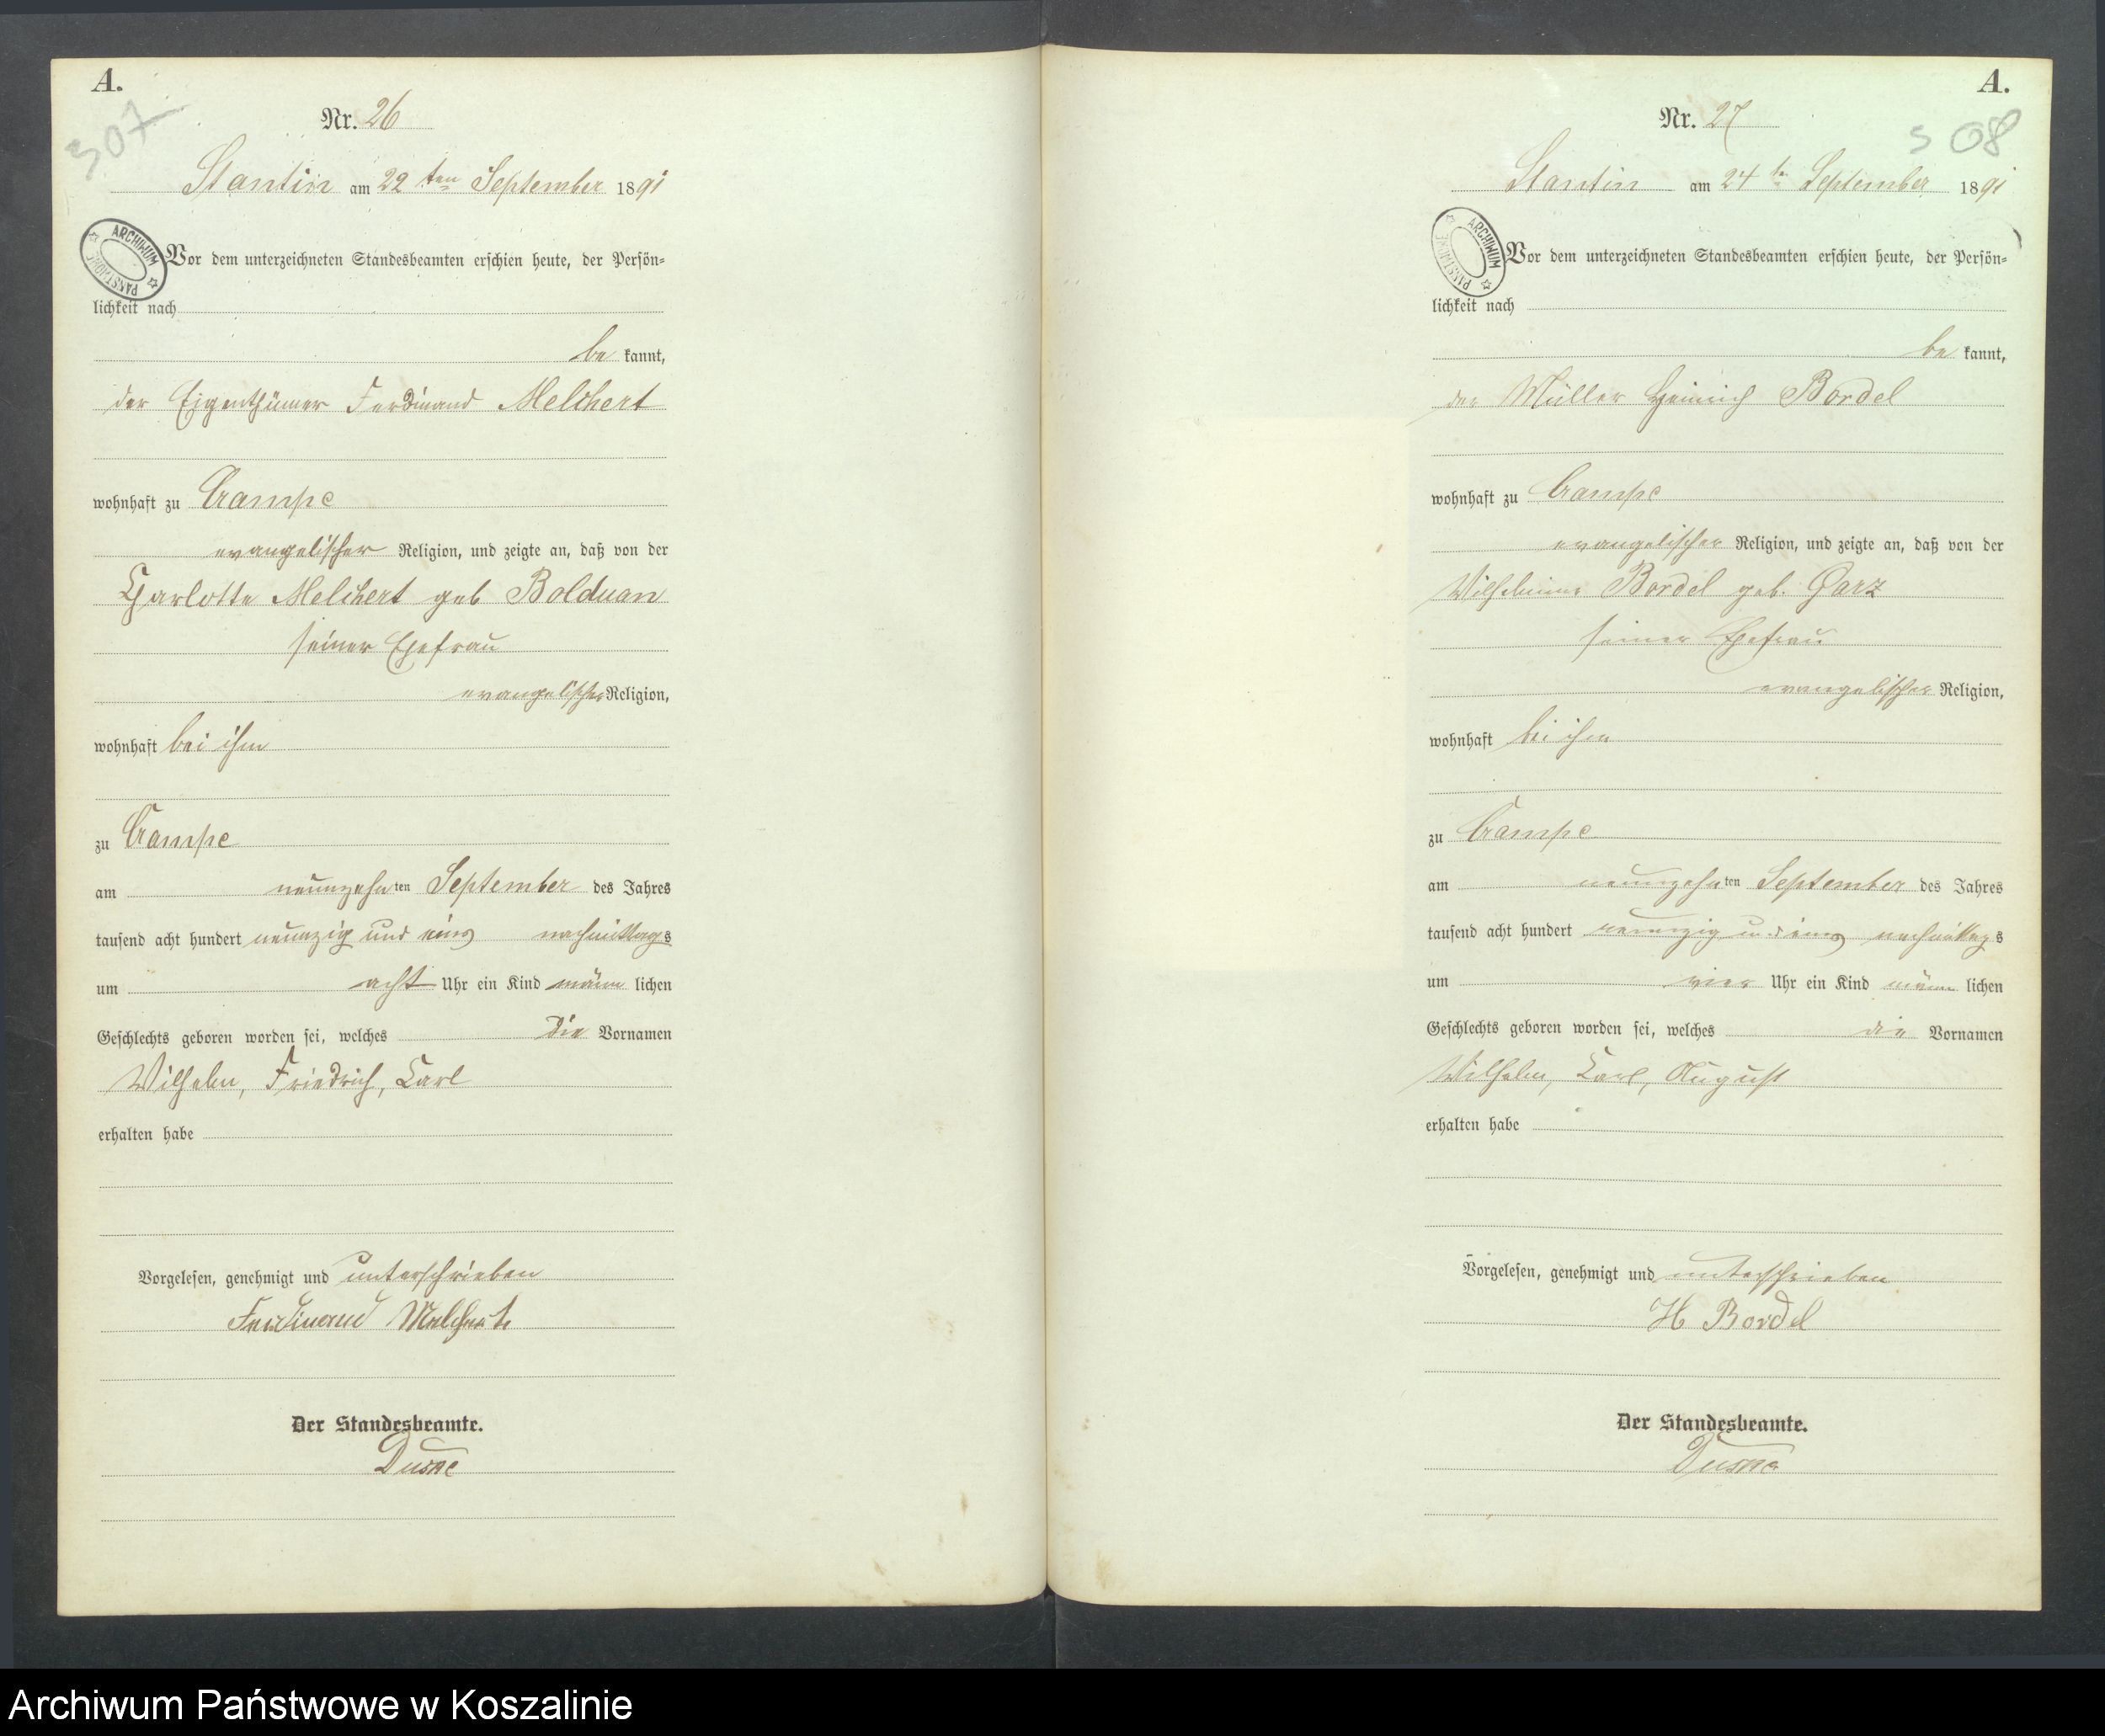 A.
307
Nr. 26
Stantin am 22 ten September 1891
ARCHIWUM PAŃSTWOWE
Vor dem unterzeichneten Standesbeamten erschien heute, der Persön=
lichkeit nach
be kannt,
der Eigenthümer Ferdinand Melchert
wohnhaft zu Crampe
evangelischer Religion, und zeigte an, daß von der
Charlotte Melchert geb Bolduan
seiner Ehefrau
evangelischer Religion,
wohnhaft bei ihm
zu Crampe
am neunzehn ten September des Jahres
tausend acht hundert neunzig und eins nachmittags
um acht Uhr ein Kind männ lichen
Geschlechts geboren worden sei, welches die Vornamen
Wilhelm, Friedrich, Carl
erhalten habe
Vorgelesen, genehmigt und unterschrieben
Ferdinand Melchert
Der Standesbeamte.
A.
308
Nr. 27
Stantin am 24 ten September 1891
ARCHIWUM PAŃSTWOWE
Vor dem unterzeichneten Standesbeamten erschien heute, der Persön=
lichkeit nach
be kannt,
der Müller Heinrich Bordel
wohnhaft zu Crampe
evangelischer Religion, und zeigte an, daß von der
Wilhelmine Bordel geb. Garz
seiner Ehefrau
evangelischer Religion,
wohnhaft bei ihm
zu Crampe
am neunzehn ten September des Jahres
tausend acht hundert neunzig und eins nachmittags
um vier Uhr ein Kind männ lichen
Geschlechts geboren worden sei, welches die Vornamen
Wilhelm, Carl, August
erhalten habe
Vorgelesen, genehmigt und unterschrieben
H Bordel
Der Standesbeamte.
Archiwum Państwowe w Koszalinie